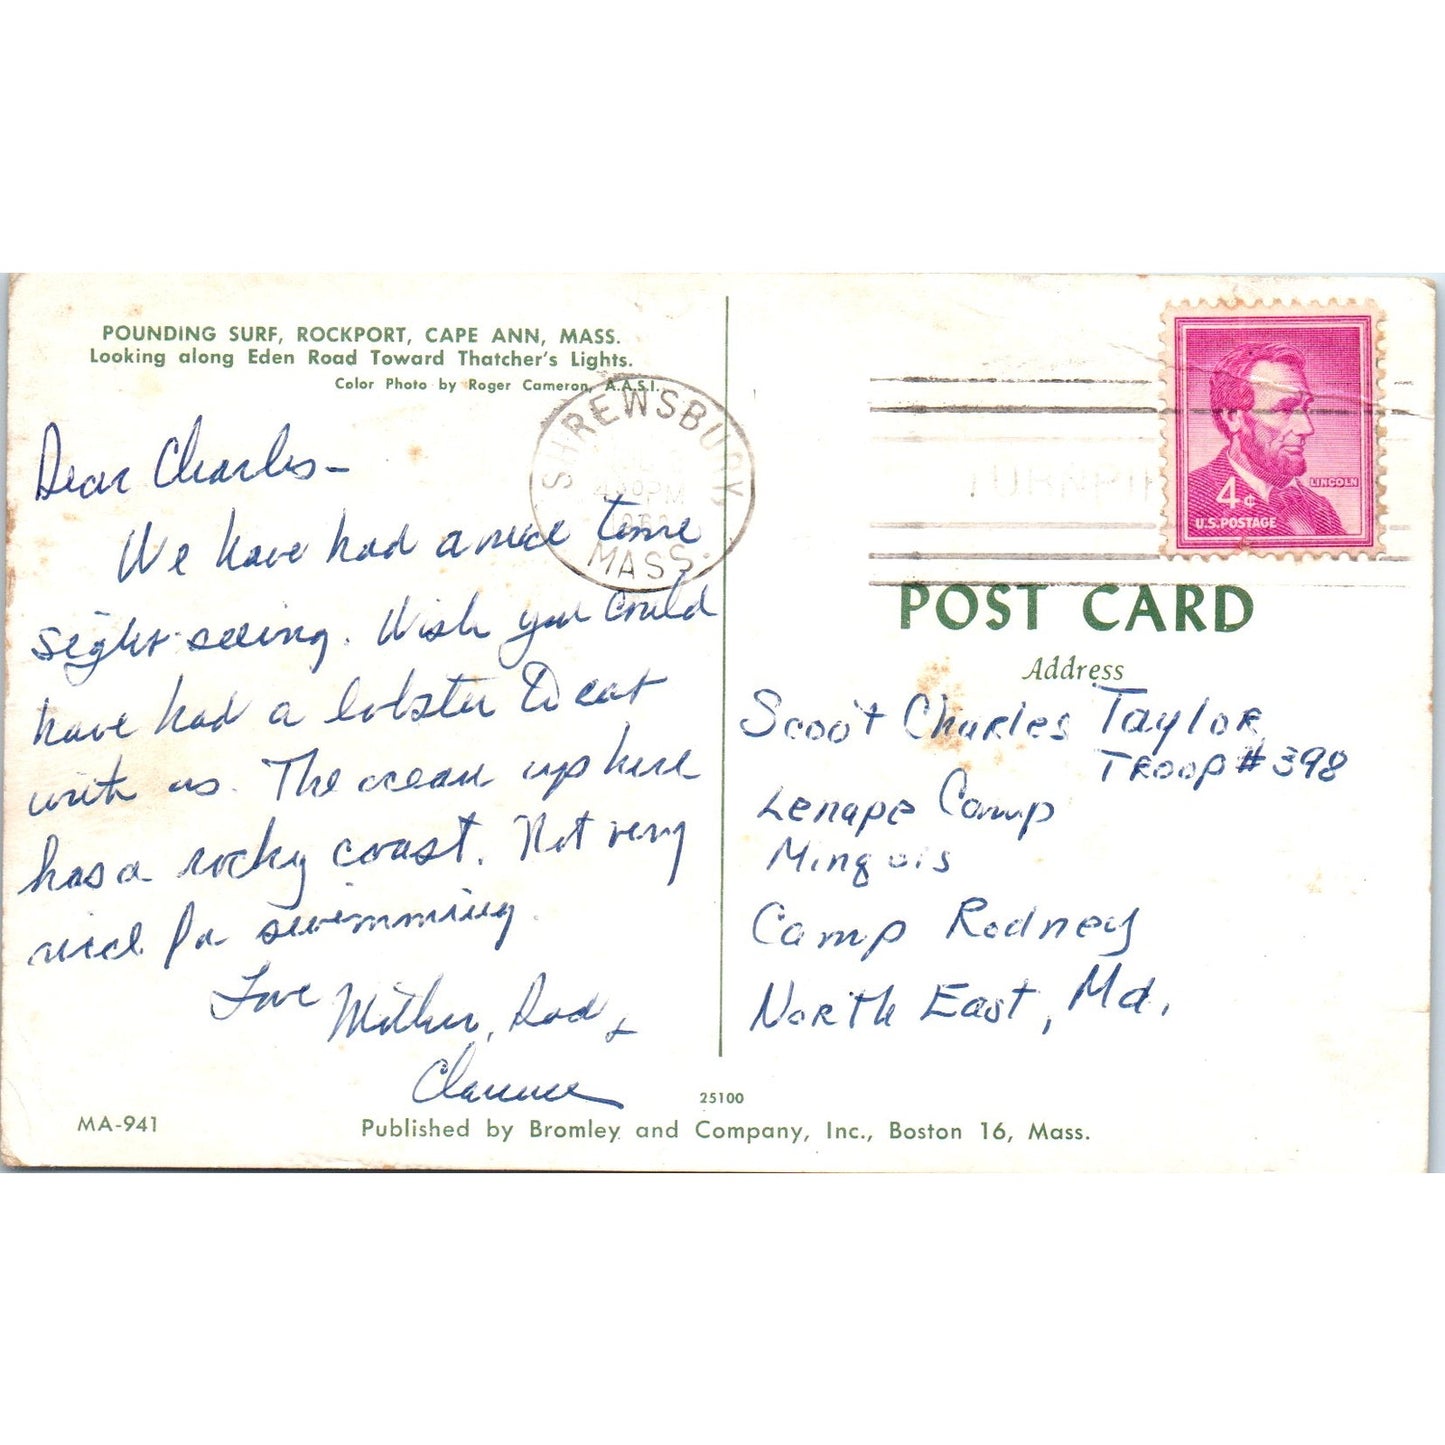 POUNDING SURF, ROCKPORT, CAPE ANN, MASS.
Looking along Eden Road Toward Thatcher's Lights.
Color Photo by Roger Cameron, A.A.S.I.
Dear Charles-
We have had a nice time
sight-seeing. Wish you could
have had a lobster to eat
with us. The ocean up here
has a rocky coast. Not very
nice for swimming.
Love Mother, Dad, &
Clarence
MA-941
SHREWSBURY
PM
MASS.
LINCOLN
4¢
U.S. POSTAGE
POST CARD
Address
Scout Charles Taylor
Troop # 398
Lenape Camp
Minquis
Camp Rodney
North East, Md.
25100
Published by Bromley and Company, Inc., Boston 16, Mass.